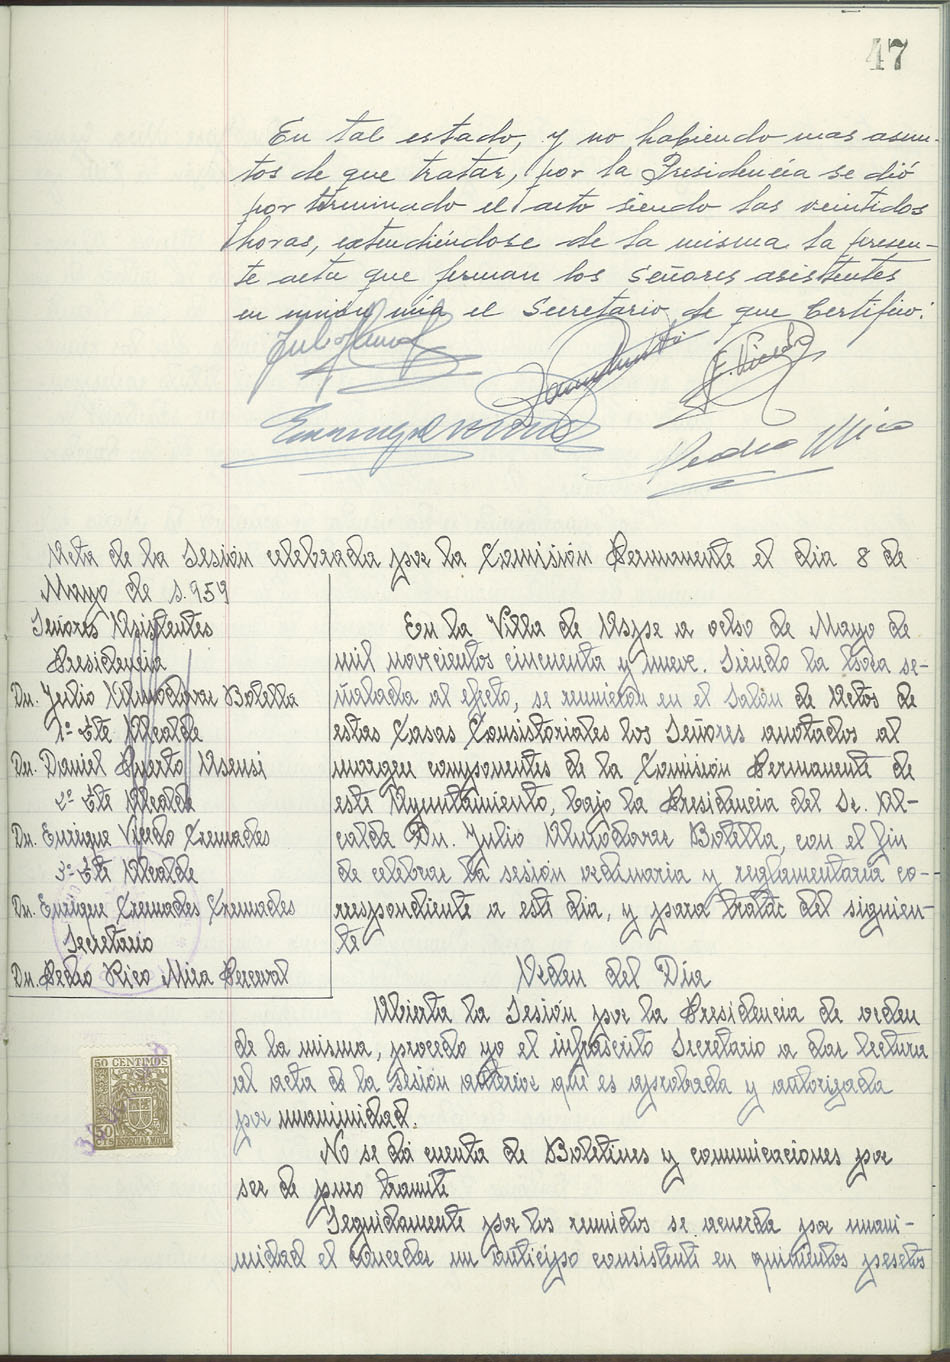 47
En tal estado, y no habiendo mas asun-
tos de que tratar, por la Presidencia se dió
por terminado el acto siendo las veintidos
horas, extendiéndose de la misma la presen-
te acta que firman los señores asistentes
en unión mia el Secretario, de que Certifico:
E. Vicedo
Pedro Mira
Acta de la Sesión celebrada por la Comisión Permanente el dia 8 de
Mayo de 1.959
Señores Asistentes
Presidencia
Dn. Julio Almodovar Botella
1º Tte Alcalde
Dn. Daniel Puerto Asensi
2º Tte Alcalde
Dn. Enrique Vicedo Cremades
3º Tte Alcalde
Dn. Enrique Cremades Cremades
Secretario
Dn. Pedro Rico Mira Perceval
En la Villa de Aspe a ocho de Mayo de
mil novecientos cincuenta y nueve. Siendo la hora se-
ñalada al efecto, se reunieron en el Salón de Actos de
estas Casas Consistoriales los Señores anotados al
margen componentes de la Comisión Permanente de
este Ayuntamiento, bajo la Presidencia del Sr. Al-
calde Dn. Julio Almodovar Botella, con el fin
de celebrar la sesión ordinaria y reglamentaria co-
rrespondiente a este dia, y para tratar del siguien-
te
Orden del Dia
Abierta la Sesión por la Presidencia de orden
de la misma, procedo yo el infrascrito Secretario a dar lectura
al acta de la sesión anterior que es aprobada y autorizada
por unanimidad.
No se dá cuenta de Boletines y comunicaciones por
ser de puro tramite
Seguidamente por los reunidos se acuerda por unani-
midad el conceder un anticipo consistente en quinientas pesetas
50 CENTIMOS
50
CTS
ESPECIAL MOVIL